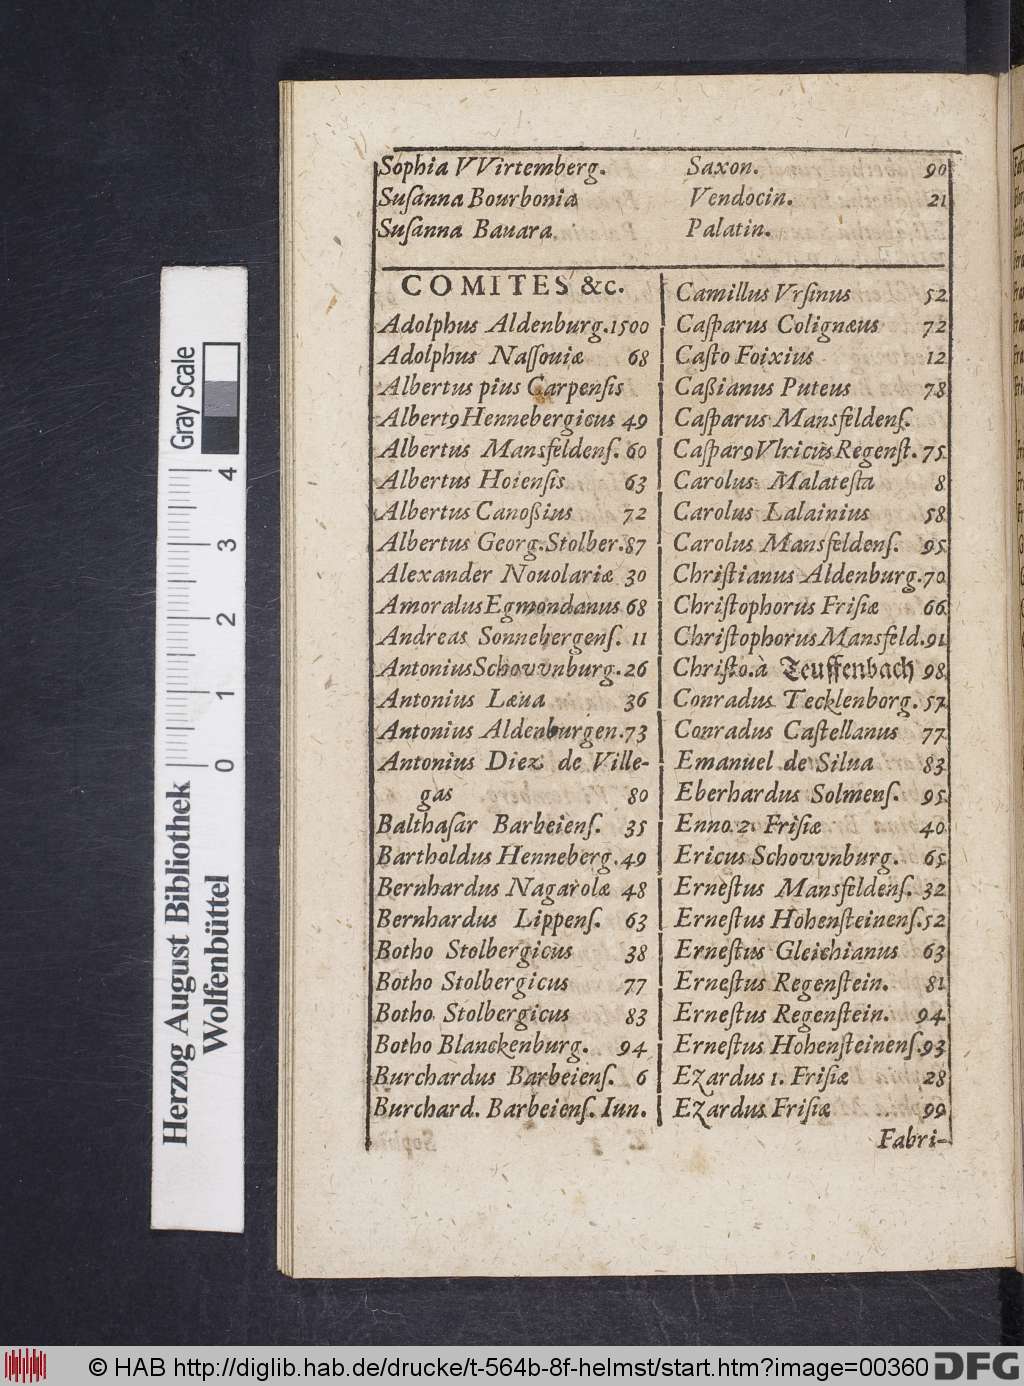 Sophia VVirtemberg. Saxon. 90
Suſanna Bourbonia Vendocin. 21
Suſanna Bauara. Palatin.
COMITES &c.
Adolphus Aldenburg. 1500
Adolphus Naſſouiæ 68
Albertus pius Carpenſis
Albert9 Hennebergicus 49
Albertus Mansfeldenſ. 60
Albertus Hoienſis 63
Albertus Canoßius 72
Albertus Georg. Stolber. 87
Alexander Nouolariæ 30
Amoralus Egmondanus 68
Andreas Sonnebergenſ. 11
Antonius Schovvnburg. 26
Antonius Læua 36
Antonius Aldenburgen. 73
Antonius Diez de Ville-
gas 80
Balthaſar Barbeienſ. 35
Bartholdus Henneberg. 49
Bernhardus Nagarolæ 48
Bernhardus Lippenſ. 63
Botho Stolbergicus 38
Botho Stolbergicus 77
Botho Stolbergicus 83
Botho Blanckenburg. 94
Burchardus Barbeienſ. 6
Burchard. Barbeienſ. Iun.
Camillus Vrſinus 52
Caſparus Colignæus 72
Caſto Foixius 12
Caßianus Puteus 78
Caſparus Mansfeldenſ.
Caſpar9 Vlricus Regenſt. 75
Carolus Malateſta 8
Carolus Lalainius 58
Carolus Mansfeldenſ. 95
Chriſtianus Aldenburg. 70
Chriſtophorus Friſiæ 66
Chriſtophorus Mansfeld. 91
Chriſto. à Teuffenbach 98
Conradus Tecklenborg. 57
Conradus Caſtellanus 77
Emanuel de Silua 83
Eberhardus Solmenſ. 95
Enno 2. Friſiæ 40
Ericus Schovvnburg. 65
Erneſtus Mansfeldenſ. 32
Erneſtus Hohenſteinenſ. 52
Erneſtus Gleichianus 63
Erneſtus Regenſtein. 81
Erneſtus Regenſtein. 94
Erneſtus Hohenſteinenſ. 93
Ezardus 1. Friſiæ 28
Ezardus Friſiæ 99
Fabri-
Gray Scale
0 1 2 3 4
Herzog August Bibliothek
Wolfenbüttel
© HAB http://diglib.hab.de/drucke/t-564b-8f-helmst/start.htm?image=00360
DFG